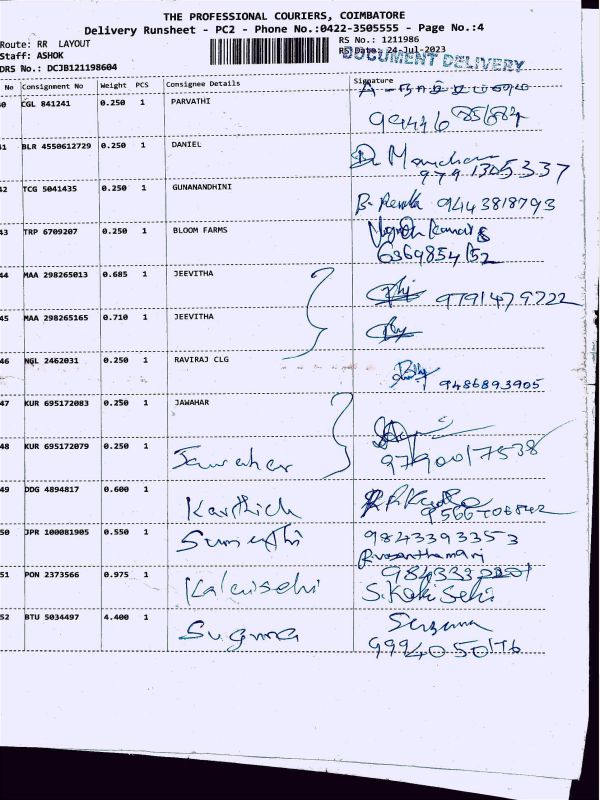 THE PROFESSIONAL COURIERS, COIMBATORE
Delivery Runsheet - PC2 - Phone No.:0422-3505555 - Page No.:4
Route: RR LAYOUT
RS No.: 1211986
Staff: ASHOK
RS Date: 24-Jul-2023
DOCUMENT DELIVERY
DRS No.: DCJB121198604
No Consignment No Weight PCS Consignee Details Signature
0 CGL 841241 0.250 1 PARVATHI
94416 85684
41 BLR 4550612729 0.250 1 DANIEL
9791305337
42 TCG 5041435 0.250 1 GUNANANDHINI
9443818793
43 TRP 6709207 0.250 1 BLOOM FARMS
6369854152
44 MAA 298265013 0.685 1 JEEVITHA
9791479722
45 MAA 298265165 0.710 1 JEEVITHA
46 NGL 2462031 0.250 1 RAVIRAJ CLG
9486893905
47 KUR 695172083 0.250 1 JAWAHAR
48 KUR 695172079 0.250 1 Jawahar
9790017538
49 DDG 4894817 0.600 1 Karthick
9566706842
50 JPR 100081905 0.550 1 Sumathi 9843393353
P.vasanthamari
51 PON 2373566 0.975 1 Kalaiselvi
S. Kalai Selvi
52 BTU 5034497 4.400 1 Suguna Suguna
9994050176